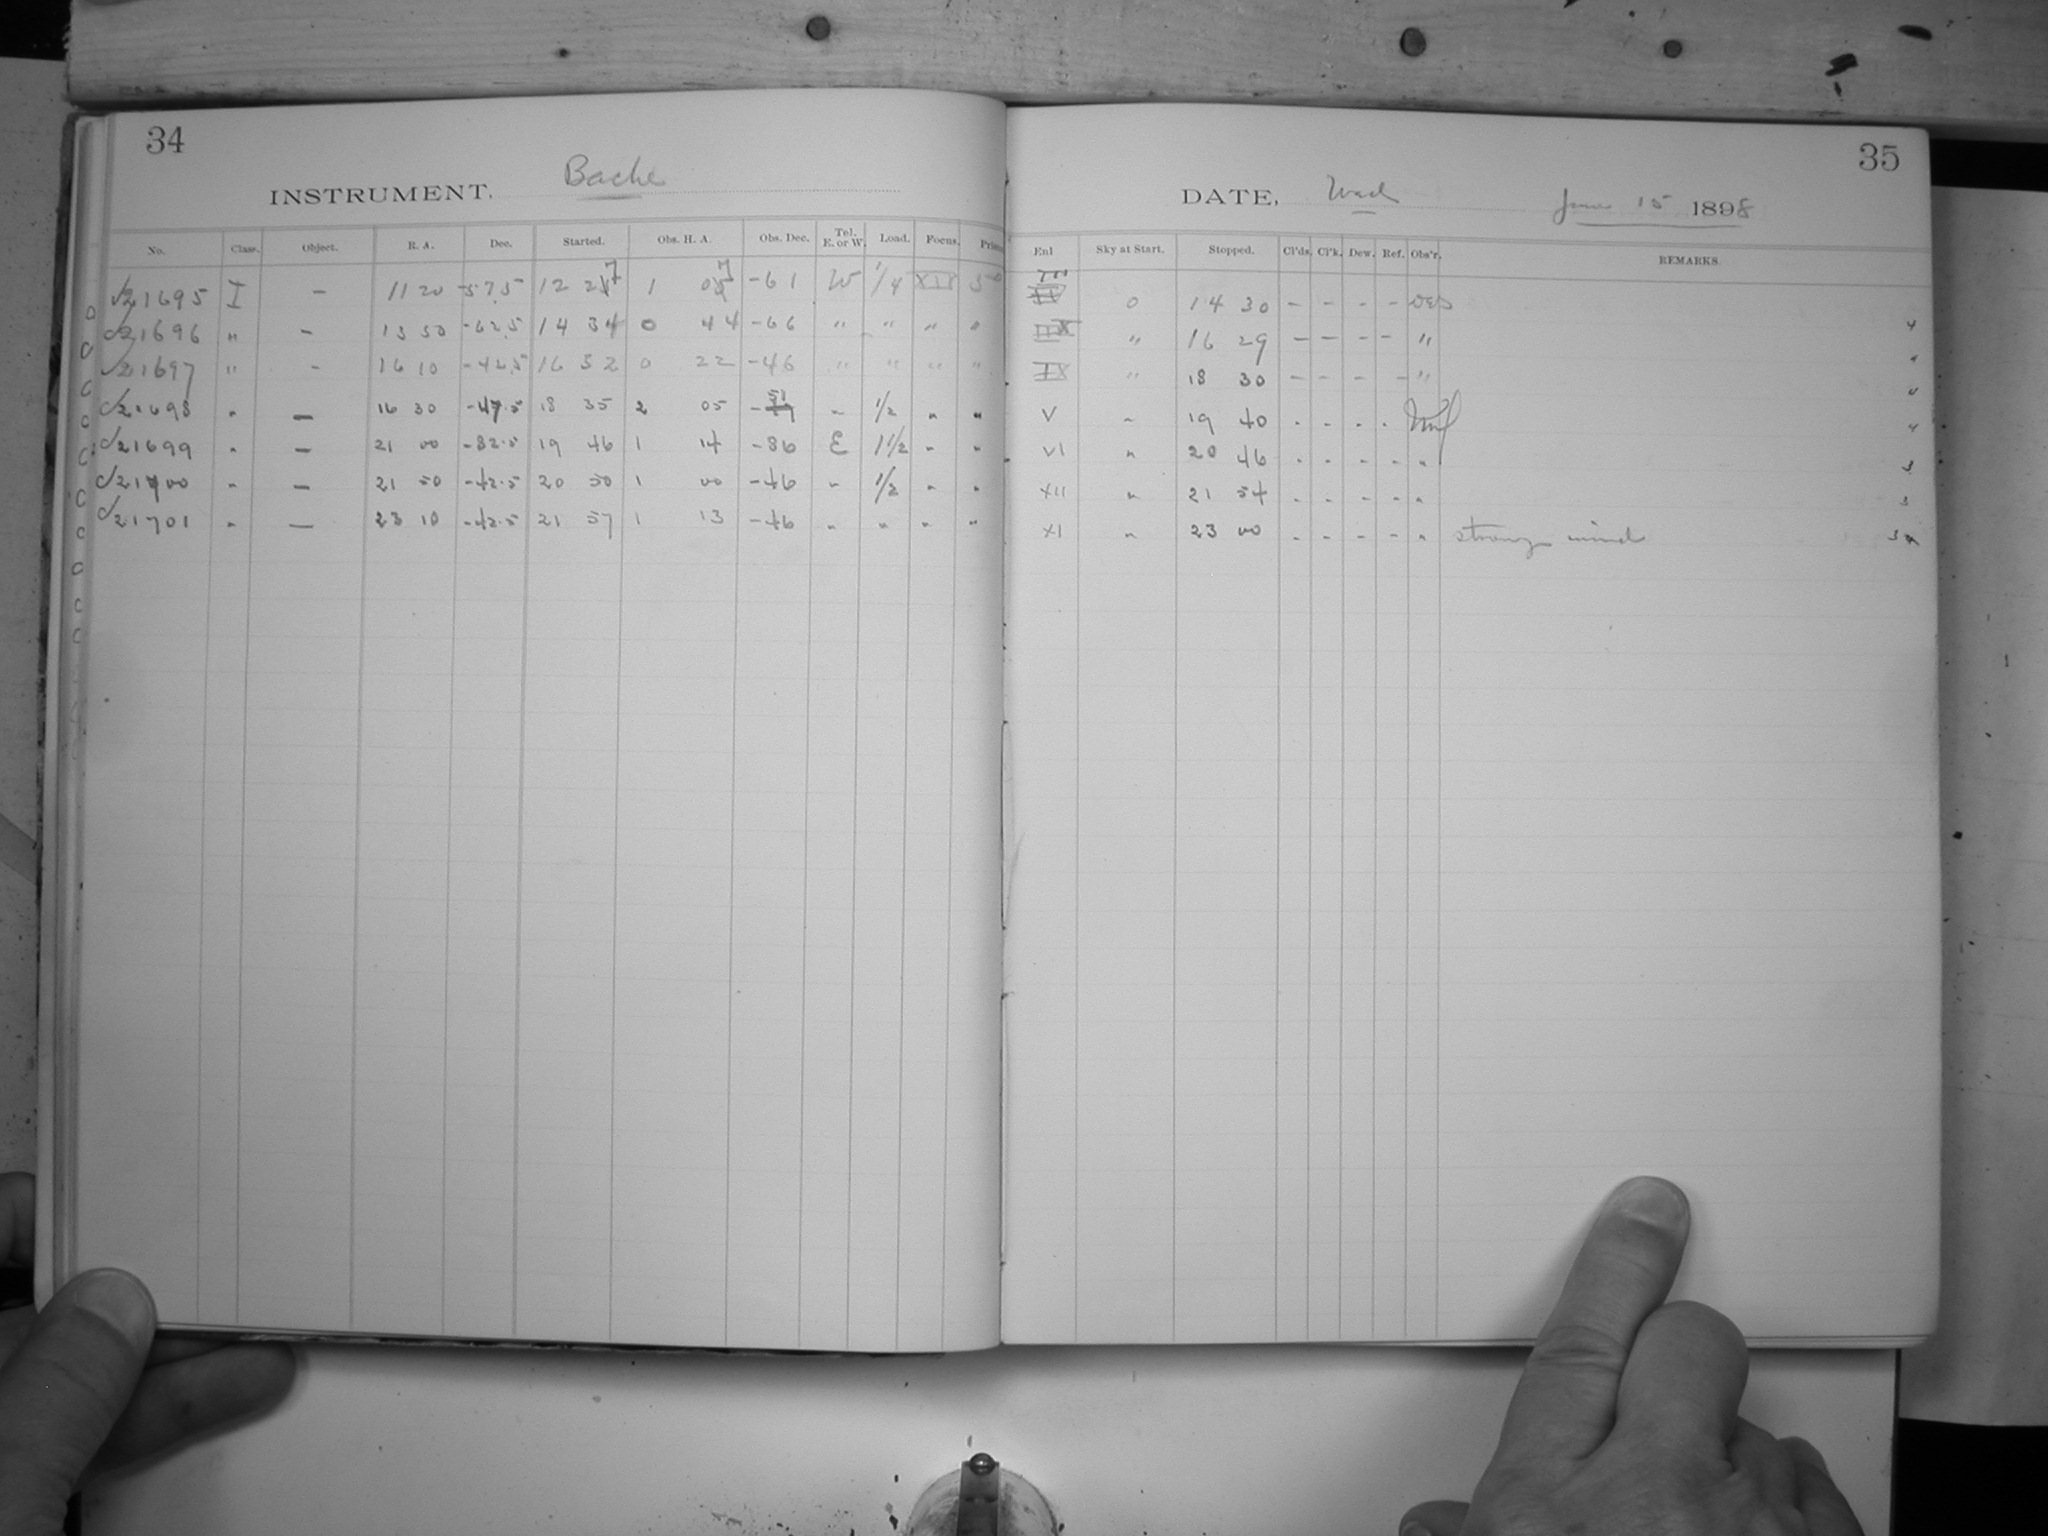 34
INSTRUMENT. Bache
No. Class. Object. R. A. Dec. Started. Obs. H. A. Obs. Dec. Tel. E. or W. Load. Focus.
21695 I — 11 20 -57.5 12 27 1 07 -61 W 1/4 XII 50
21696 " — 13 50 -62.5 14 34 0 44 -66 " " " "
21697 " - 16 10 -42.5 16 32 0 22 -46 " " " "
21698 " — 16 30 -47.5 18 35 2 05 -51 " 1/2 " "
21699 " — 21 00 -82.5 19 46 1 14 -86 E 1 1/2 " "
21700 " — 21 50 -42.5 20 50 1 00 -46 " 1/2 " "
21701 " — 23 10 -42.5 21 57 1 13 -46 " " " "
35
DATE, Wed June 15 1898
Enl Sky at Start. Stopped. Cl'ds. Cl'k. Dew. Ref. Obs'r. REMARKS.
0 14 30 - - - - 4
" 16 29 - - - - "
IX " 18 30 - - - - "
V " 19 40 - - - - 4
VI " 20 46 - - - - " 3
XII " 21 54 - - - - " 3
XI " 23 00 - - - - " strong wind